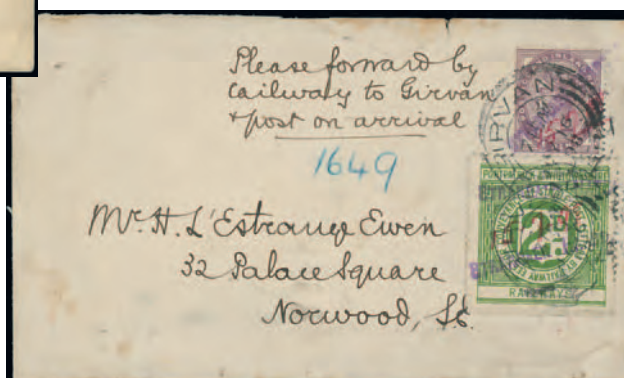 Please forward by
railway to Girvan
& post on arrival
1649
Mr. H. L'Estrange Ewen
32 Palace Square
Norwood, S.E.
GIRVAN
2D.
RAILWAY